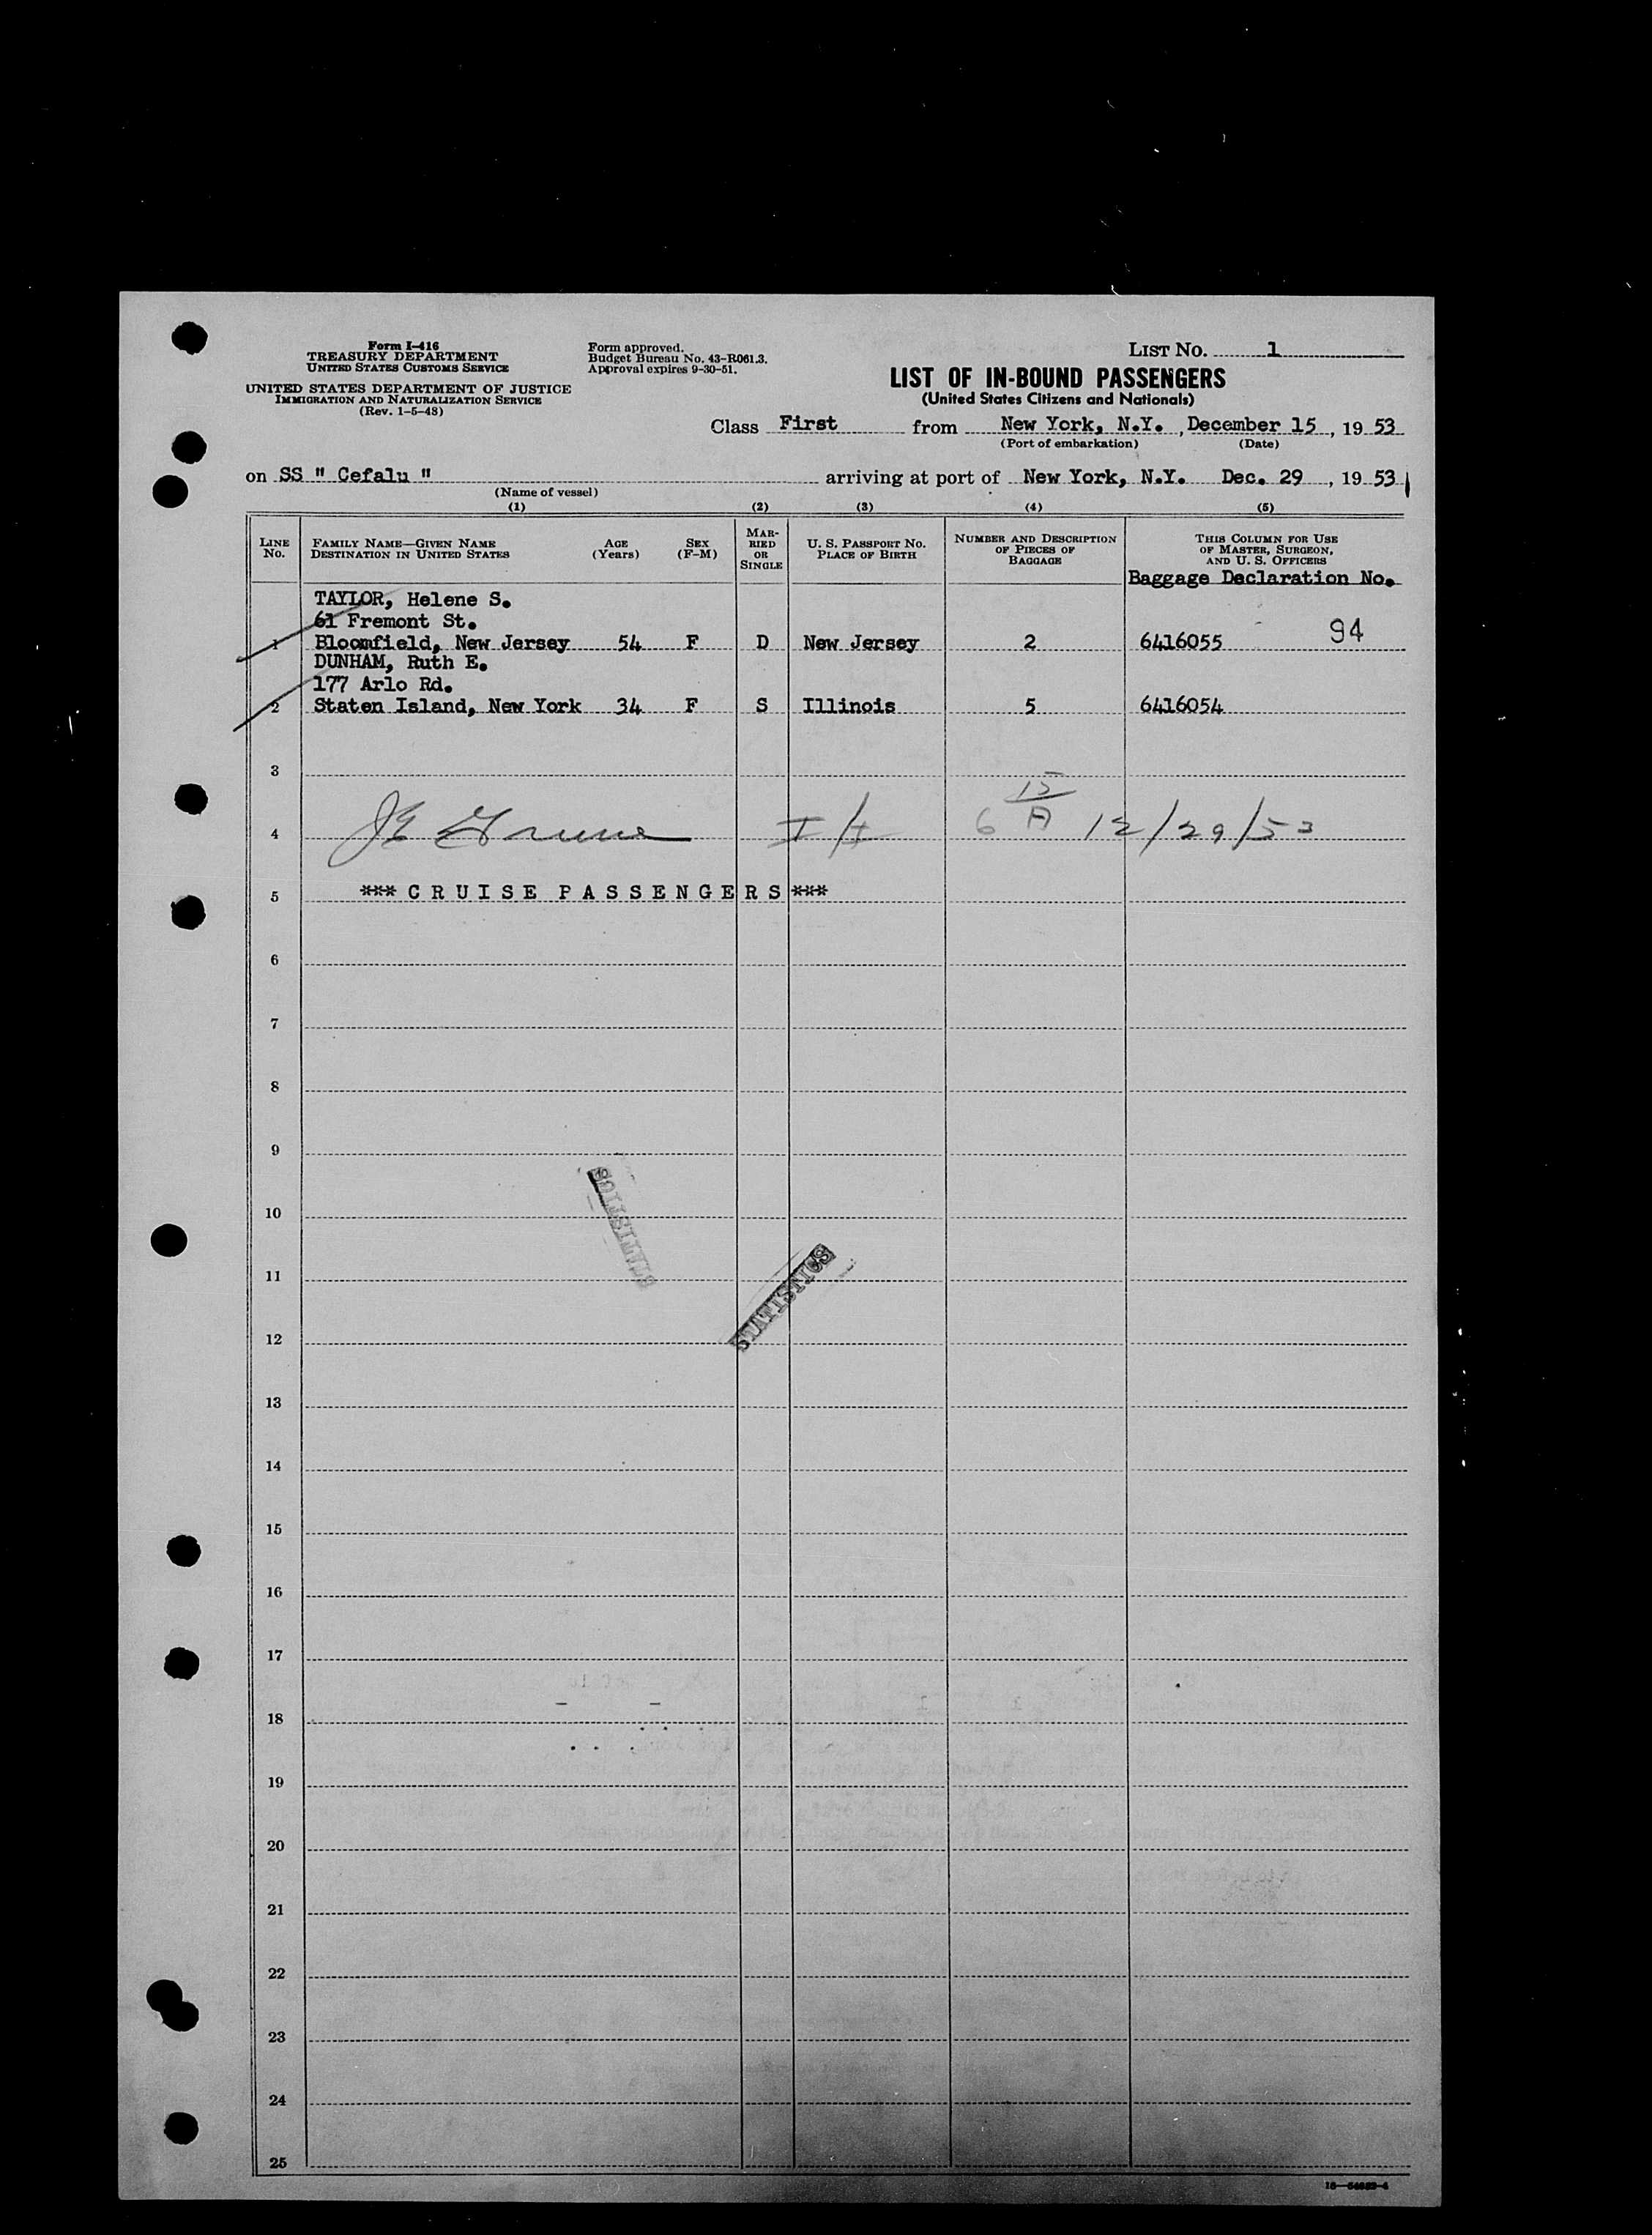 Form I-416
TREASURY DEPARTMENT
UNITED STATES CUSTOMS SERVICE
UNITED STATES DEPARTMENT OF JUSTICE
IMMIGRATION AND NATURALIZATION SERVICE
(Rev. 1-5-48)
Form approved.
Budget Bureau No. 43-R061.3.
Approval expires 9-30-51.
LIST NO. 1
LIST OF IN-BOUND PASSENGERS
(United States Citizens and Nationals)
Class First from New York, N.Y., December 15, 1953
(Port of embarkation) (Date)
on SS " Cefalu " arriving at port of New York, N.Y. Dec. 29, 1953
(Name of vessel)
(1) (2) (3) (4) (5)
LINE No. FAMILY NAME—GIVEN NAME DESTINATION IN UNITED STATES AGE (Years) SEX (F-M) MARRIED OR SINGLE U. S. PASSPORT NO. PLACE OF BIRTH NUMBER AND DESCRIPTION OF PIECES OF BAGGAGE THIS COLUMN FOR USE OF MASTER, SURGEON, AND U. S. OFFICERS
Baggage Declaration No.
TAYLOR, Helene S.
61 Fremont St.
1 Bloomfield, New Jersey 54 F D New Jersey 2 6416055 94
DUNHAM, Ruth E.
177 Arlo Rd.
2 Staten Island, New York 34 F S Illinois 5 6416054
3
4 12/29/53
5 *** CRUISE PASSENGERS ***
6
7
8
9
STATISTICS
10
11
STATISTICS
12
13
14
15
16
17
18
19
20
21
22
23
24
25